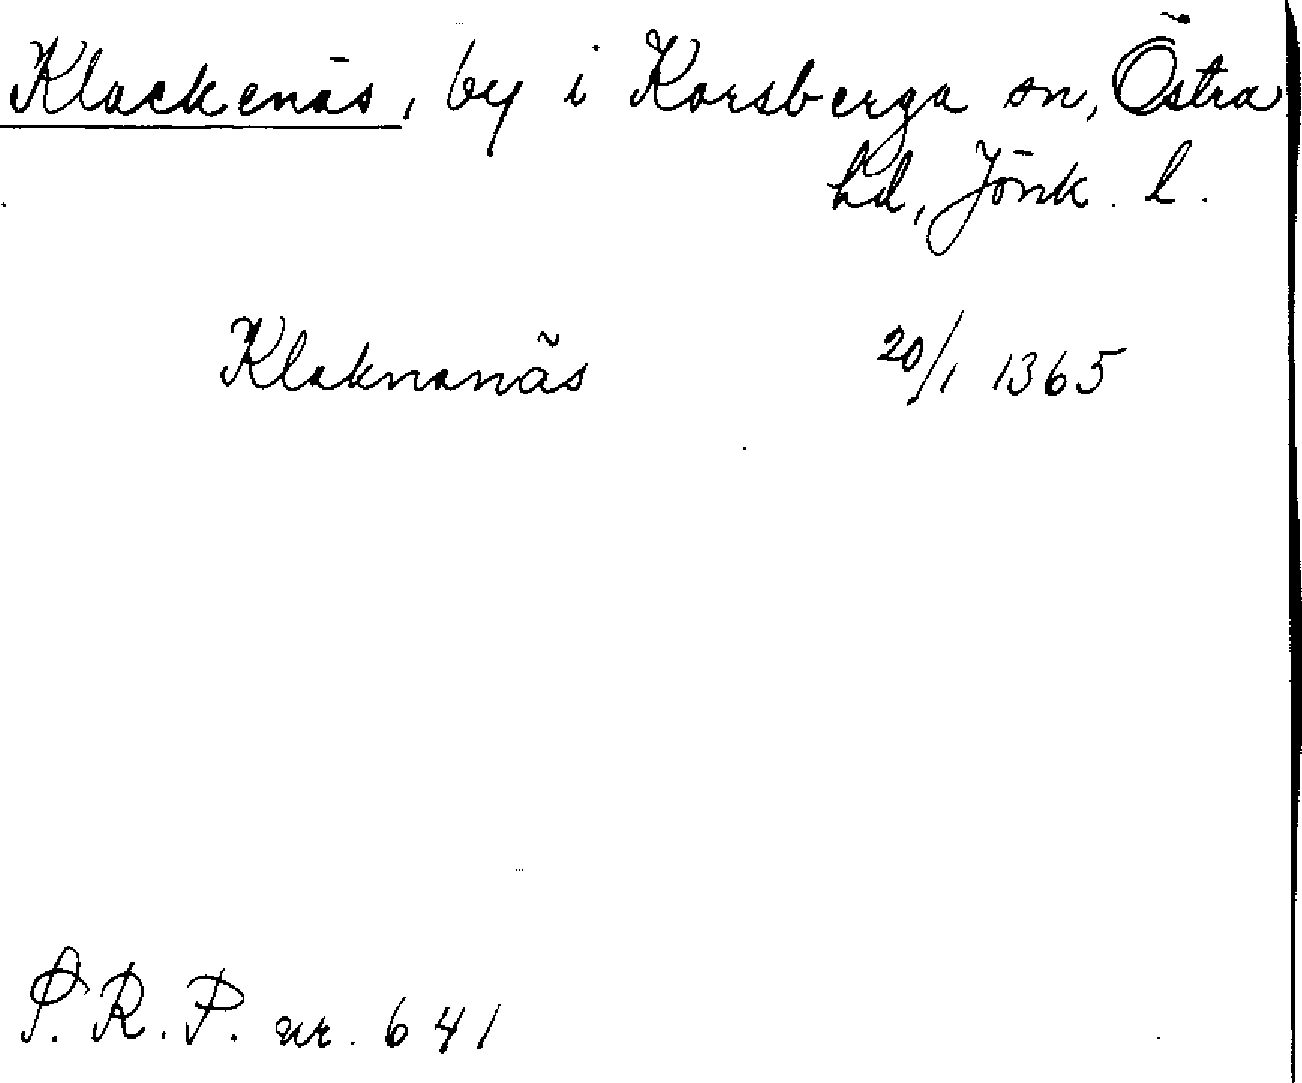 Klackenäs, by i Korsberga sn, Östra
hd, Jönk. l.
Klaknanäs 20/1 1365
P. R. P. nr. 641